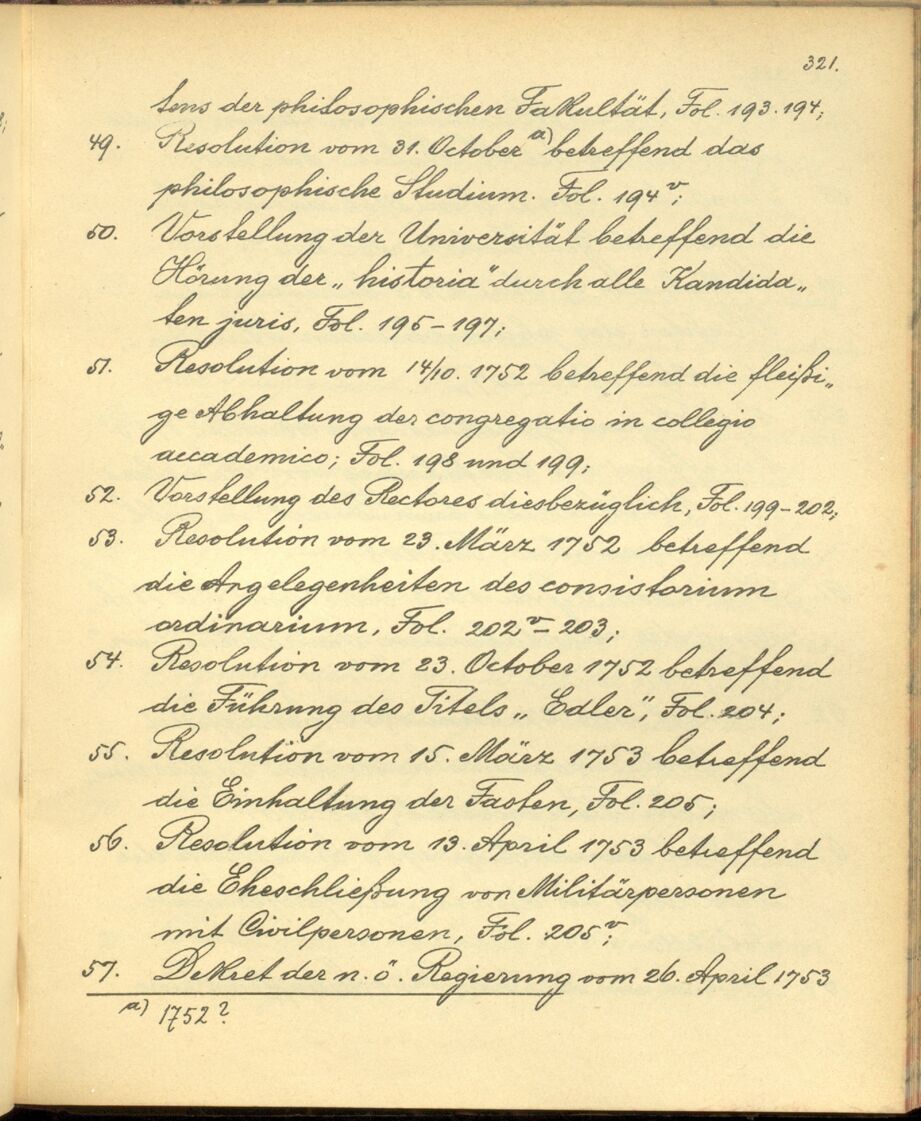 321.
tens der philosophischen Fakultät, Fol. 193.194;
49. Resolution vom 31. October a) betreffend das
philosophische Studium. Fol. 194v;
50. Vorstellung der Universität betreffend die
Hörung der „historia" durch alle Kandida„
ten juris, Fol. 195-197;
51. Resolution vom 14/10. 1752 betreffend die fleißi„
ge Abhaltung der congregatio in collegio
accademico; Fol. 198 und 199;
52. Vorstellung des Rectores diesbezüglich, Fol. 199-202;
53. Resolution vom 23. März 1752 betreffend
die Angelegenheiten des consistorium
ordinarium, Fol. 202v-203;
54. Resolution vom 23. October 1752 betreffend
die Führung des Titels „Edler", Fol. 204;
55. Resolution vom 15. März 1753 betreffend
die Einhaltung der Fasten, Fol. 205;
56. Resolution vom 13. April 1753 betreffend
die Eheschließung von Militärpersonen
mit Civilpersonen, Fol. 205v;
57. Dekret der n. ö. Regierung vom 26. April 1753
a) 1752?